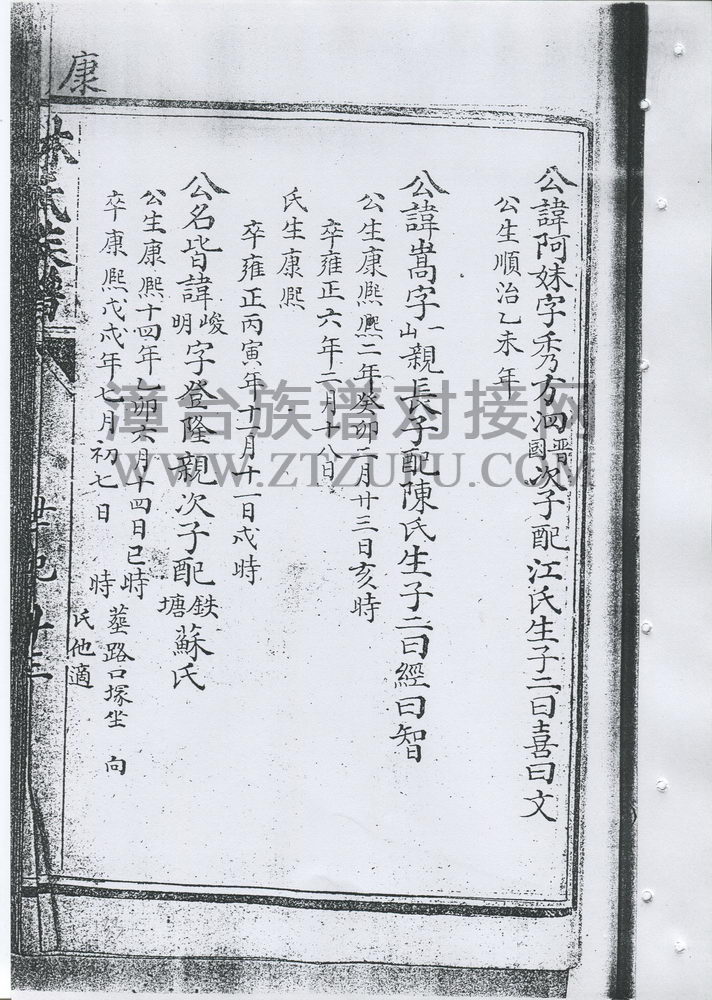 公諱阿妹字秀方泗晋國次子配江氏生子二曰喜曰文
公生順治乙未年
公諱嵩字一山親長子配陳氏生子二曰經曰智
公生康熙熙二年癸卯二月廿三日亥時
卒雍正六年二月十八日
氏生康熙
卒雍正丙寅年十一月十一日戌時
公名皆諱峻明字登隆親次子配鉄塘蘇氏
公生康熙十四年乙卯六月十四日巳時
卒康熙戊戌年七月初七日 時 塟路口塚坐 向
氏他適
林氏族譜
世紀 廿三
康
漳台族谱对接网
WWW.ZTZUPU.COM